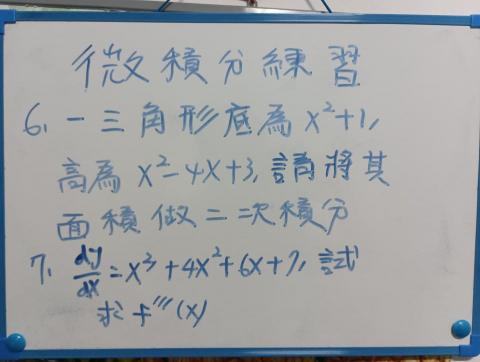 微積分練習
6、一三角形底為x²+1,
高為x²-4x+3,請將其
面積做二次積分
7、dy/dx=x³+4x²+6x+7,試
求f'''(x)